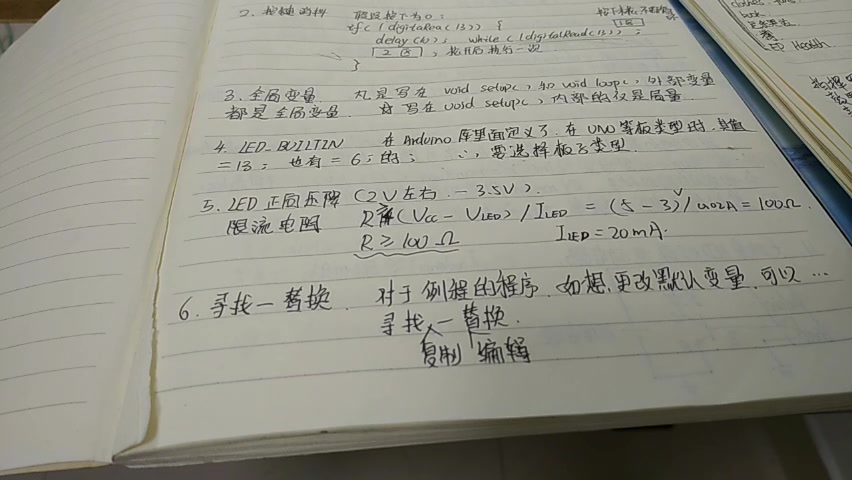 2. 按键的抖 假设按下为0:
if ( ! digitalRead(13)) {
delay ( ); while ( ! digitalRead(13));
松开后执行一次
}
3. 全局变量 凡是写在 void setup(), 和 void loop(), 外部变量
都是全局变量. 写在 void setup(), 内部的仅是局量.
4. LED_BUILTIN 在 Arduino 库里面定义了, 在 UNO 等板类型时, 其值
= 13; 也有 = 6; 的; ∴, 要选择板子类型.
5. LED 正向压降 (2V左右. - 3.5V).
限流电阻 (Vcc - VLED) / ILED = (5 - 3)V / 0.02A = 100Ω.
R ≥ 100 Ω ILED = 20mA.
6. 寻找一替换. 对于例程的程序. 如想, 更改默认变量, 可以…
寻找一替换.
复制 编辑
book
LED Health